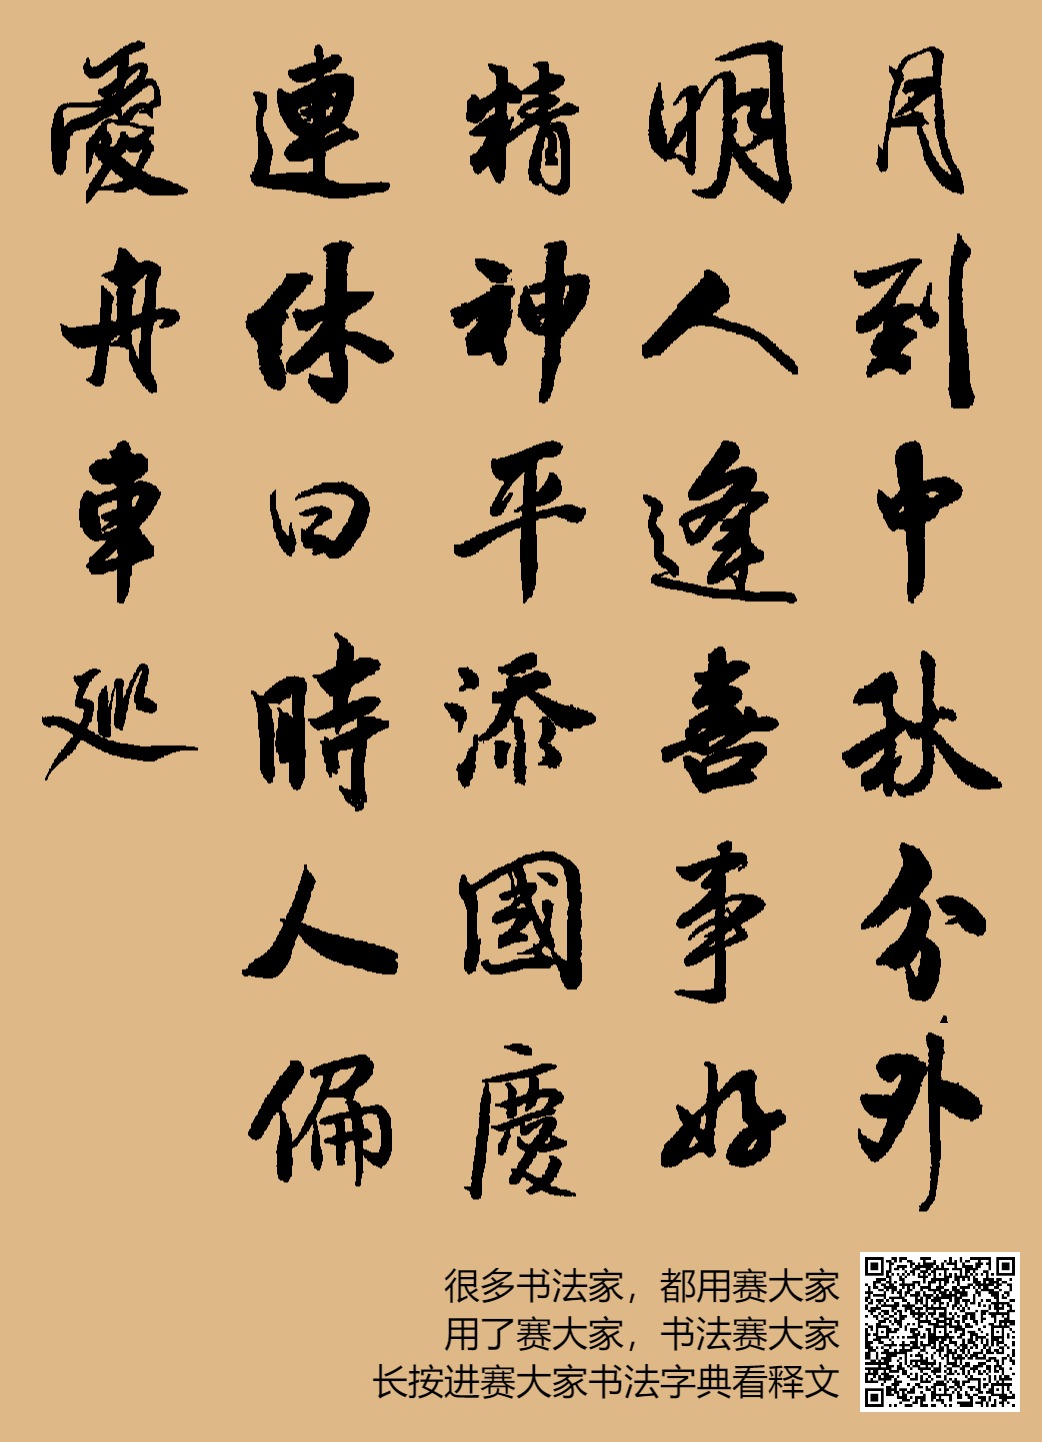 月到中秋分外
明人逢喜事好
精神平添國慶
連休日時人偏
愛舟車巡
很多书法家，都用赛大家
用了赛大家，书法赛大家
长按进赛大家书法字典看释文